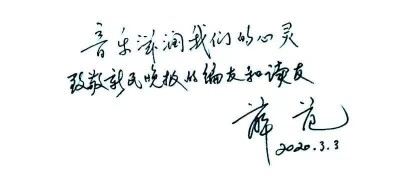 音乐滋润我们的心灵
致敬新民晚报的编友和读友
薛范
2020.3.3